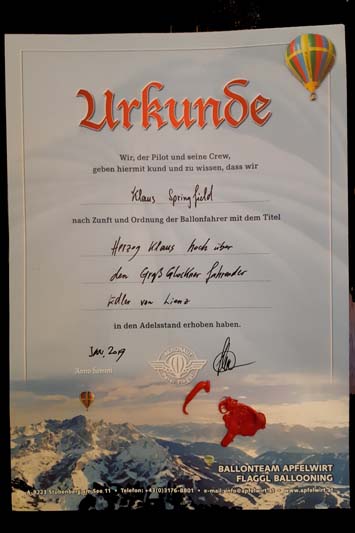 Urkunde
Wir, der Pilot und seine Crew,
geben hiermit kund und zu wissen, dass wir
Klaus Springfield
nach Zunft und Ordnung der Ballonfahrer mit dem Titel
Herzog Klaus hoch über
den Groß Glockner fahrender
Edler von Lienz
in den Adelsstand erhoben haben.
Jän. 2019
Anno Domini
BALLONTEAM APFELWIRT
FLAGGL BALLOONING
A-8223 Stubenberg am See 11 • Telefon: +43(0)3176-8801 • e-mail: info@apfelwirt.at • www.apfelwirt.at